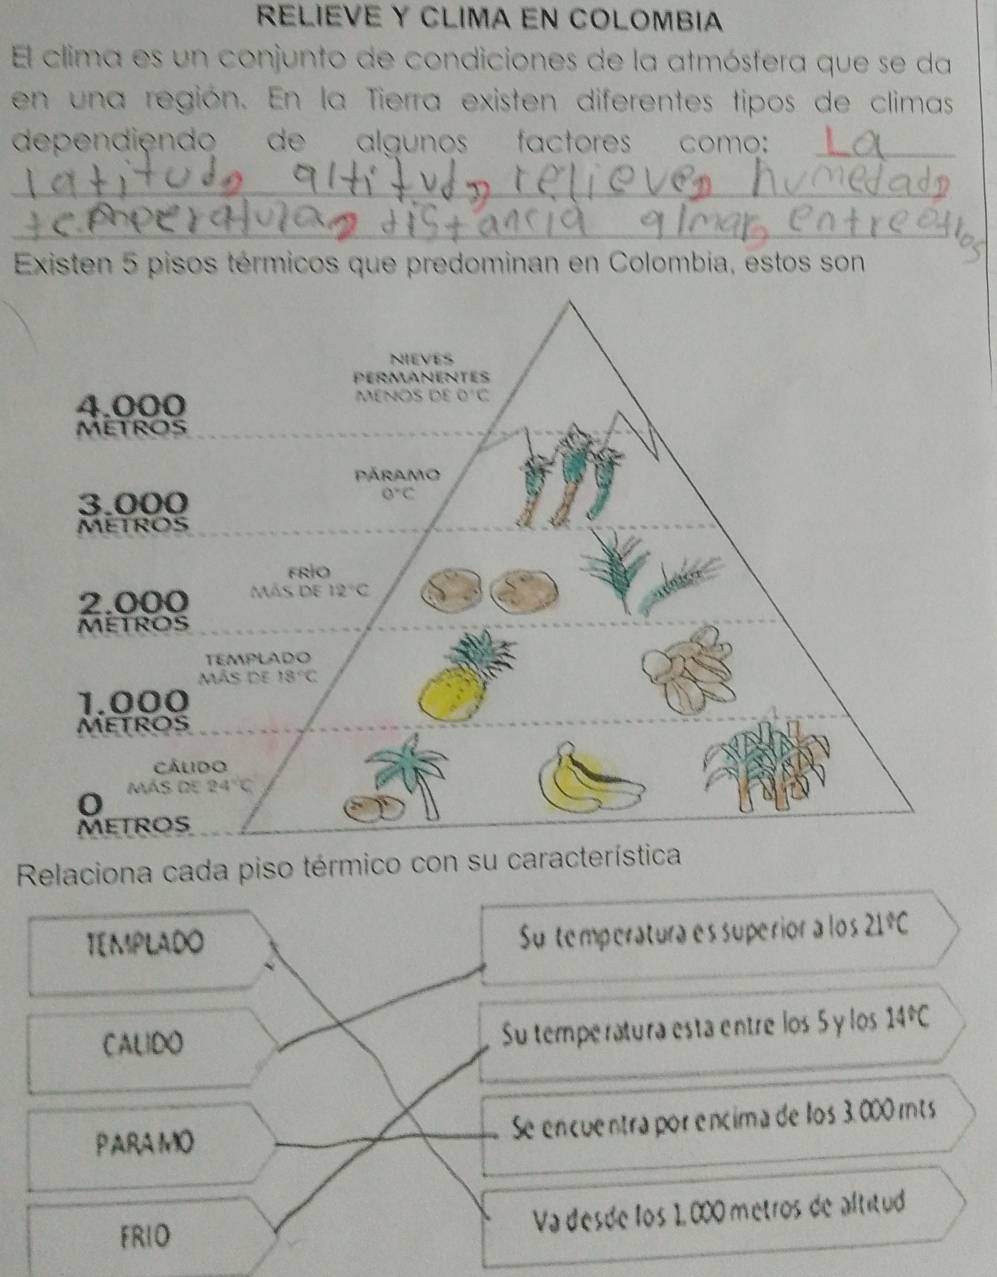 RELIEVE Y CLIMA EN COLOMBIA
El clima es un conjunto de condiciones de la atmósfera que se da
en una región. En la Tierra existen diferentes tipos de climas
dependiendo de algunos factores como: La
latitud, altitud, relieve, humedad,
temperatura, distancia almar, entre otros
Existen 5 pisos térmicos que predominan en Colombia, estos son
NIEVES
PERMANENTES
MENOS DE 0°C
4.000
METROS
PÁRAMO
0°C
3.000
METROS
FRÍO
MÁS DE 12°C
2.000
METROS
TEMPLADO
MÁS DE 18°C
1.000
METROS
CÁLIDO
MÁS DE 24°C
0
METROS
Relaciona cada piso térmico con su característica
TEMPLADO
Su temperatura es superior a los 21°C
CALIDO
Su temperatura esta entre los 5 y los 14°C
PARAMO
Se encuentra por encima de los 3.000 mts
FRIO
Va desde los 1.000 metros de altitud